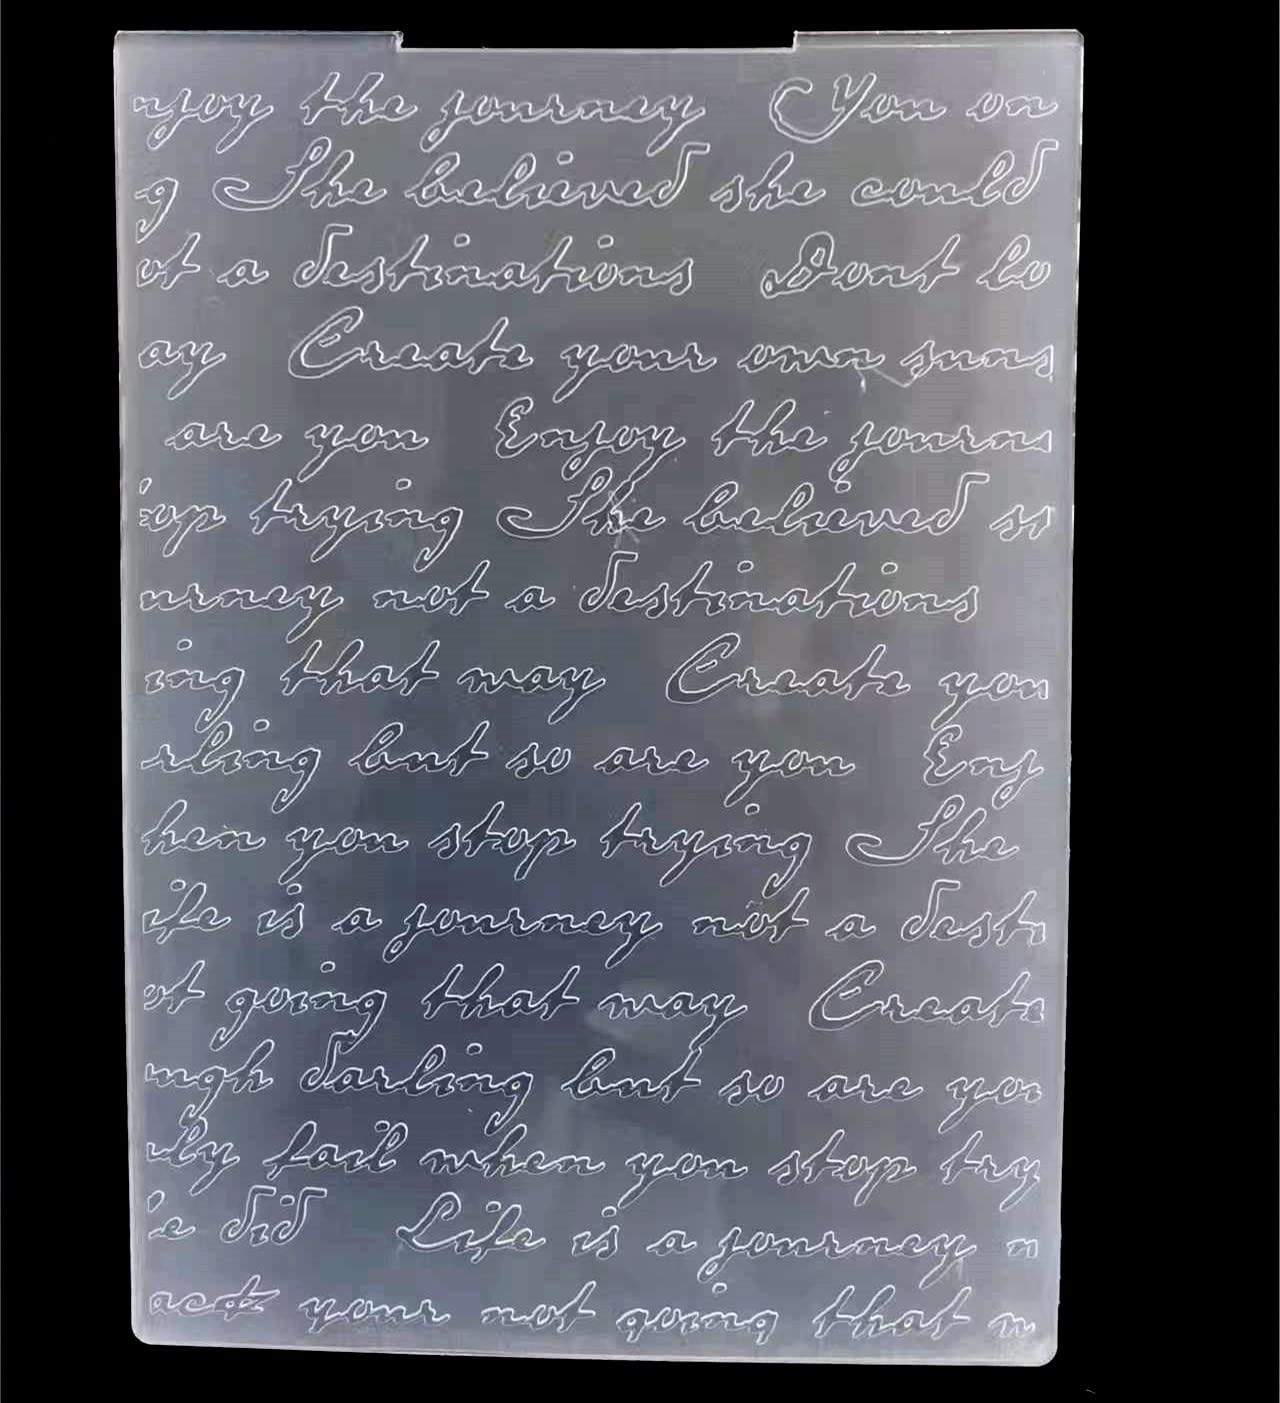 njoy the journey You on
g She believed she could
ot a destinations Dont lo
ay Create your own suns
are you Enjoy the journe
op trying She believed s
urney not a destinations
ing that may Create you
rling but so are you Enj
hen you stop trying She
ife is a journey not a desti
ot going that may Create
ugh darling but so are you
ly fail when you stop try
e did Life is a journey n
back your not going that m